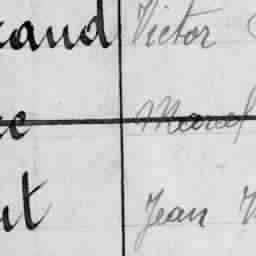 caud Victor
Marcel
ut Jean